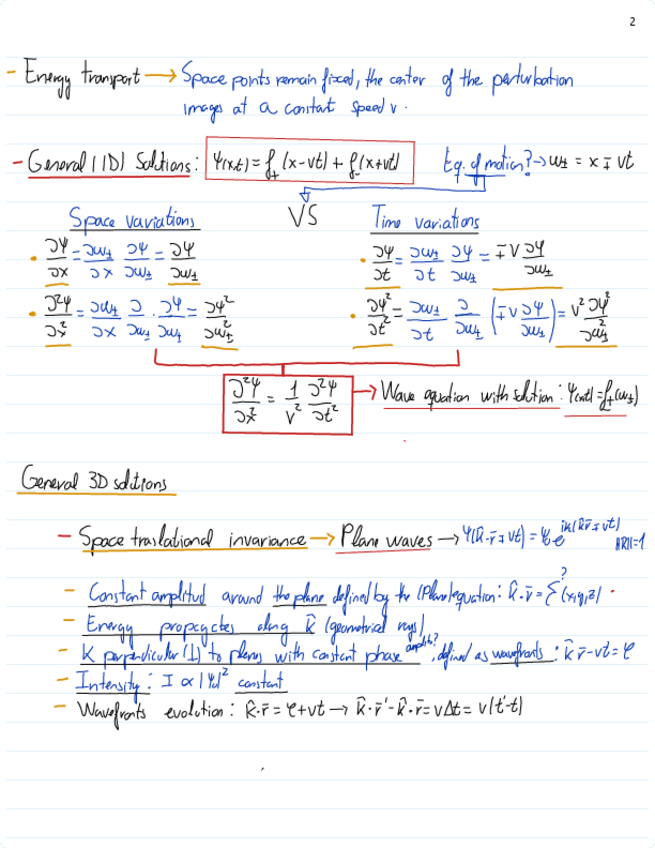 2
- Energy transport → Space points remain fixed, the center of the perturbation
images at a constant speed v.
- General (1D) Solutions: Ψ(x,t) = f₊(x-vt) + f₋(x+vt) Eq. of motion? → w± = x ∓ vt
Space variations VS Time variations
• ∂Ψ/∂x = ∂w±/∂x ∂Ψ/∂w± = ∂Ψ/∂w± • ∂Ψ/∂t = ∂w±/∂t ∂Ψ/∂w± = ∓v ∂Ψ/∂w±
• ∂²Ψ/∂x² = ∂w±/∂x ∂/∂w± · ∂Ψ/∂w± = ∂Ψ²/∂w±² • ∂Ψ²/∂t² = ∂w±/∂t ∂/∂w± (∓v ∂Ψ/∂w±) = v² ∂Ψ²/∂w±²
∂²Ψ/∂x² = 1/v² ∂²Ψ/∂t² → Wave equation with solution: Ψ(x,t) = f±(w±)
General 3D solitions
- Space traslational invariance → Plane waves → Ψ(k̂·r̄ ∓ vt) = Ψ₀ e^{ik(k̂r̄ ∓ vt)}
|k̂|=1
- Constant amplitud around the plane defined by the (Plane) equation: k̂·r̄ = ξ(x,y,z) ? .
- Energy propagates along k̂ (geometrical rays)
- K perpendicular (⊥) to planes with constant phase amplit?, defined as wavefronts: k̂r̄-vt=φ
- Intensity: I ∝ |Ψ|² constant
- Wavefronts evolution: k̂·r̄ = φ+vt → k̂·r̄'-k̂·r̄ = vΔt = v(t'-t)